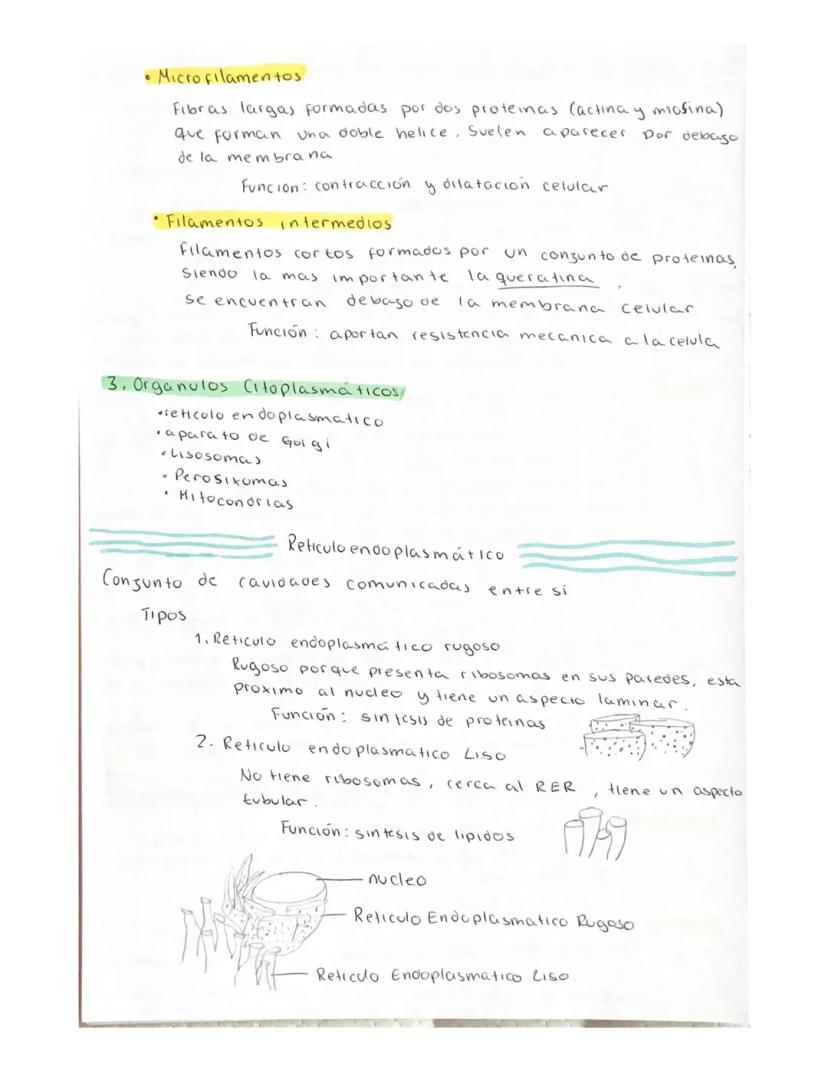 • Microfilamentos
Fibras largas formadas por dos proteinas (actina y miosina)
que forman una doble helice. Suelen aparecer por debajo
de la membrana
Funcion: contracción y dilatación celular
• Filamentos intermedios
Filamentos cortos formados por un conjunto de proteinas,
siendo la mas importante la queratina.
se encuentran debajo de la membrana celular
Función: aportan resistencia mecanica a la celula
3. Organulos Citoplasmáticos
• reticulo endoplasmatico
• aparato de Golgi
• Lisosomas
• Perosixomas
• Mitocondrias
Reticulo endoplasmático
Conjunto de cavidades comunicadas entre si
Tipos
1. Reticulo endoplasmático rugoso
Rugoso porque presenta ribosomas en sus paredes, esta
proximo al nucleo y tiene un aspecto laminar.
Función: sintesis de proteinas
2. Reticulo endoplasmatico Liso
No tiene ribosomas, cerca al RER, tiene un aspecto
tubular.
Función: sintesis de lipidos
nucleo
Reticulo Endoplasmatico Rugoso
Reticulo Endoplasmatico Liso